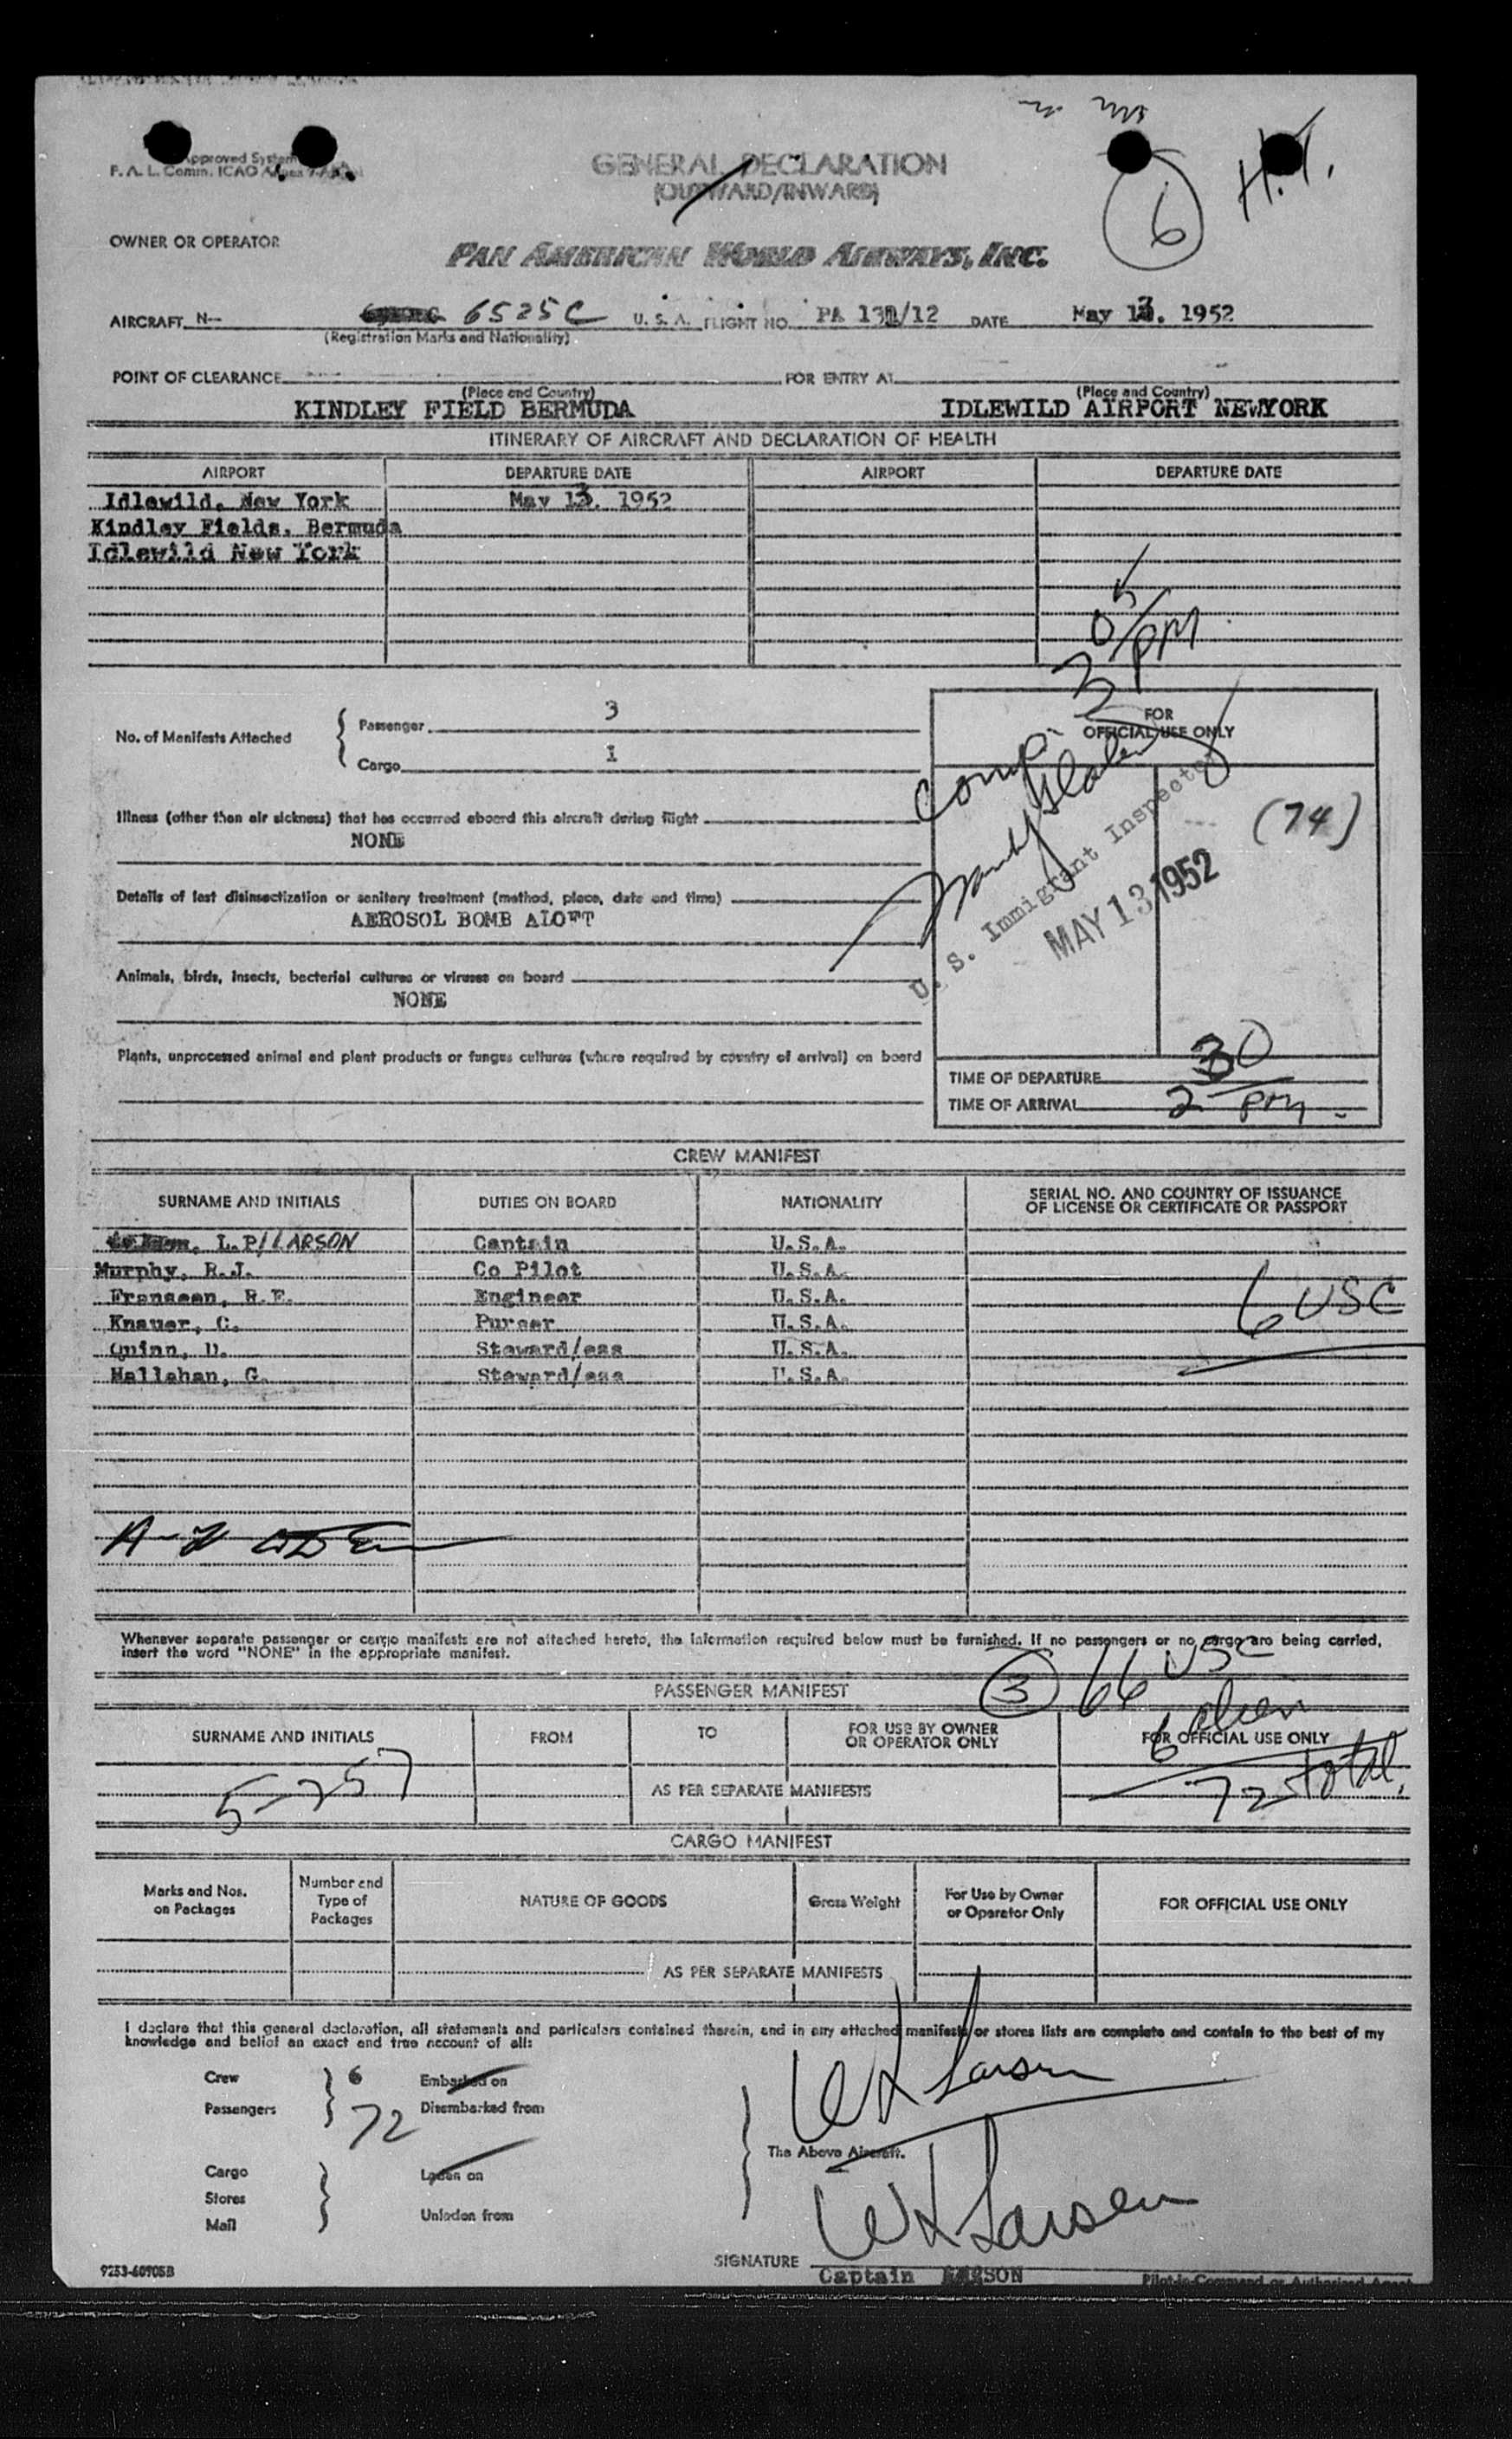 Approved System
F. A. L. Comm. ICAO Annex 9
GENERAL DECLARATION
(OUTWARD/INWARD)
6
H.T.
OWNER OR OPERATOR
PAN AMERICAN WORLD AIRWAYS, INC.
AIRCRAFT N-- 6525C U. S. A. FLIGHT NO. PA 131/12 DATE May 13. 1952
(Registration Marks and Nationality)
POINT OF CLEARANCE FOR ENTRY AT
(Place and Country) (Place and Country)
KINDLEY FIELD BERMUDA IDLEWILD AIRPORT NEWYORK
ITINERARY OF AIRCRAFT AND DECLARATION OF HEALTH
AIRPORT DEPARTURE DATE AIRPORT DEPARTURE DATE
Idlewild, New York May 13. 1952
Kindley Fields, Bermuda
Idlewild New York
3 05/PM
Comp.
No. of Manifests Attached
Passenger 3
Cargo 1
FOR
OFFICIAL USE ONLY
U. S. Immigrant Inspector
MAY 13 1952
(74)
Illness (other than air sickness) that has occurred aboard this aircraft during flight
NONE
Details of last disinsectization or sanitary treatment (method, place, date and time)
AEROSOL BOMB ALOFT
Animals, birds, insects, bacterial cultures or viruses on board
NONE
Plants, unprocessed animal and plant products or fungus cultures (where required by country of arrival) on board
TIME OF DEPARTURE
TIME OF ARRIVAL 2 30 PM.
CREW MANIFEST
SURNAME AND INITIALS DUTIES ON BOARD NATIONALITY SERIAL NO. AND COUNTRY OF ISSUANCE
OF LICENSE OR CERTIFICATE OR PASSPORT
L.P/LARSON Captain U.S.A.
Murphy, R.J. Co Pilot U.S.A.
Franseen, R.E. Engineer U.S.A.
Knauer, C. Purser U.S.A.
Quinn, D. Steward/ess U.S.A.
Hallahan, G. Steward/ess U.S.A.
6 USC
Whenever separate passenger or cargo manifests are not attached hereto, the information required below must be furnished. If no passengers or no cargo are being carried,
insert the word "NONE" in the appropriate manifest.
PASSENGER MANIFEST
3 66 USC
6 alien
72 total.
SURNAME AND INITIALS FROM TO FOR USE BY OWNER
OR OPERATOR ONLY FOR OFFICIAL USE ONLY
5-757
AS PER SEPARATE MANIFESTS
CARGO MANIFEST
Marks and Nos.
on Packages
Number and
Type of
Packages
NATURE OF GOODS
Gross Weight
For Use by Owner
or Operator Only
FOR OFFICIAL USE ONLY
AS PER SEPARATE MANIFESTS
I declare that this general declaration, all statements and particulars contained therein, and in any attached manifests or stores lists are complete and contain to the best of my
knowledge and belief an exact and true account of all:
Crew 6 Embarked on
Passengers 72 Disembarked from
W L Larsen
The Above Aircraft.
Cargo Laden on
Stores
Mail Unladen from
W L Larsen
SIGNATURE
Captain LARSON
Pilot-in-Command or Authorized Agent
9253-60905B